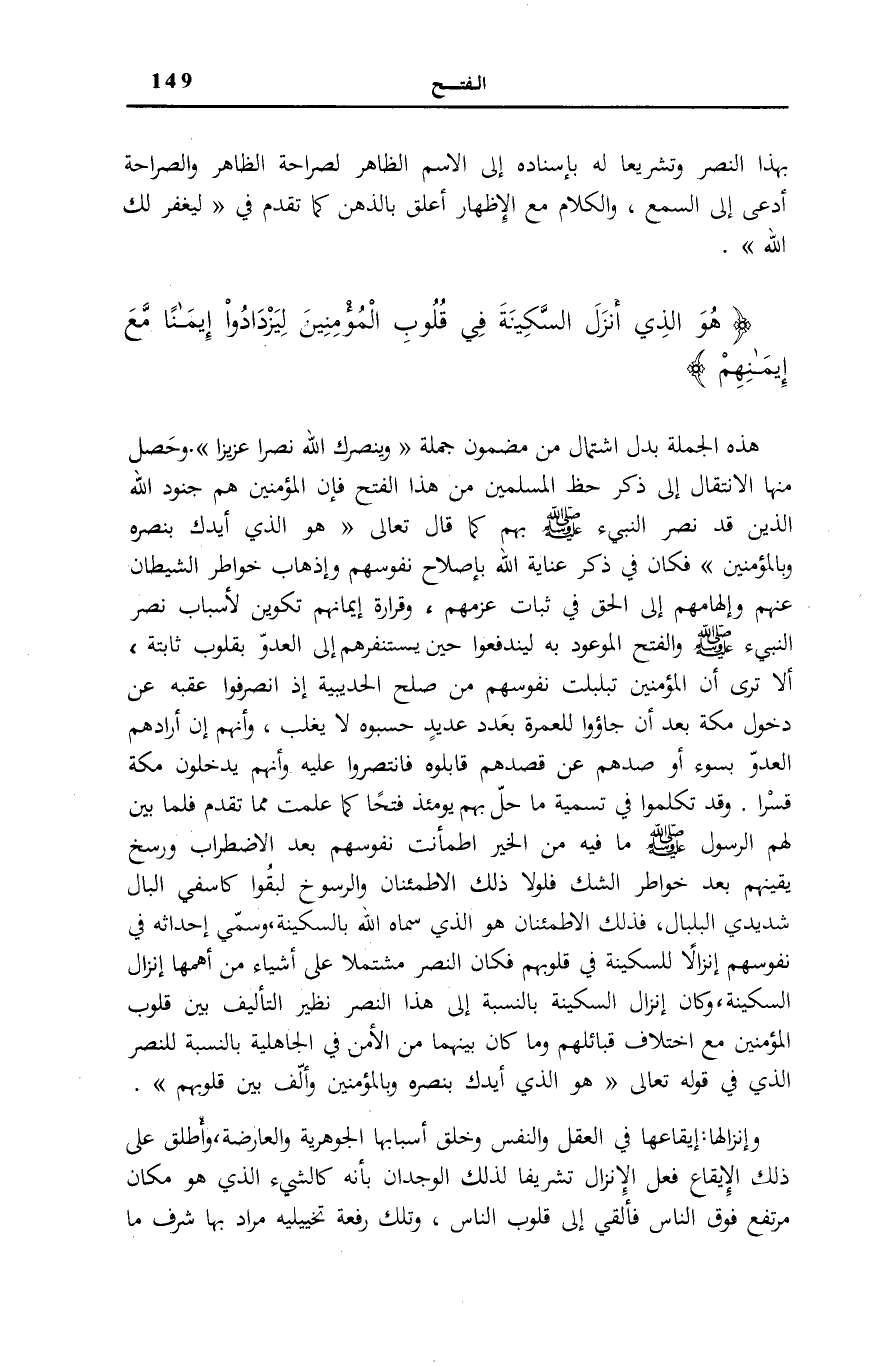 الفتح 149
بهذا النصر وتشريعا له بإسناده إلى الاسم الظاهر لصراحة الظاهر والصراحة
أدعى إلى السمع ، والكلام مع الإظهار أعلق بالذهن كما تقدم في « ليغفر لك
الله » .
﴿ هُوَ الذِي أَنزَلَ السَّكِينَةَ فِي قُلُوبِ الْمُؤْمِنِينَ لِيَزْدَادُواْ إِيمَـٰنًا مَّعَ
إِيمَـٰنِهِمْ ﴾
هذه الجملة بدل اشتمال من مضمون جملة « وينصرك الله نصرا عزيزا ».وحَصل
منها الانتقال إلى ذكر حظ المسلمين من هذا الفتح فإن المؤمنين هم جنود الله
الذين قد نصر النبيء ﷺ بهم كما قال تعالى « هو الذي أيدك بنصره
وبالمؤمنين » فكان في ذكر عناية الله بإصلاح نفوسهم وإذهاب خواطر الشيطان
عنهم وإلهامهم إلى الحق في ثبات عزمهم ، وقرارة إيمانهم تكوين لأسباب نصر
النبيء ﷺ والفتح الموعود به ليندفعوا حين يستنفرهم إلى العدوّ بقلوب ثابتة ،
ألا ترى أن المؤمنين تبلبلت نفوسهم من صلح الحديبية إذ انصرفوا عقبه عن
دخول مكة بعد أن جاؤوا للعمرة بعَدد عديدٍ حسبوه لا يغلب ، وأنهم إن أرادهم
العدوّ بسوء أو صدهم عن قصدهم قابلوه فانتصروا عليه وأنهم يدخلون مكة
قسْرا . وقد تكلموا في تسمية ما حلّ بهم يومئذ فتحًا كما علمت مما تقدم فلما بين
لهم الرسول ﷺ ما فيه من الخير اطمأنت نفوسهم بعد الاضطراب ورسخ
يقينهم بعد خواطر الشك فلولا ذلك الاطمئنان والرسوخ لبقُوا كاسفي البال
شديدي البلبال، فذلك الاطمئنان هو الذي سماه الله بالسكينة،وسمّي إحداثه في
نفوسهم إنزالًا للسكينة في قلوبهم فكان النصر مشتملا على أشياء من أهمها إنزال
السكينة،وكان إنزال السكينة بالنسبة إلى هذا النصر نظير التأليف بين قلوب
المؤمنين مع اختلاف قبائلهم وما كان بينهما من الأمن في الجاهلية بالنسبة للنصر
الذي في قوله تعالى « هو الذي أيدك بنصره وبالمؤمنين وألّف بين قلوبهم » .
وإنزالها:إيقاعها في العقل والنفس وخلق أسبابها الجوهرية والعارضة،وأُطلق على
ذلك الإيقاع فعل الإنزال تشريفا لذلك الوجدان بأنه كالشيء الذي هو مكان
مرتفع فوق الناس فألقي إلى قلوب الناس ، وتلك رفعة تخييليه مراد بها شرف ما